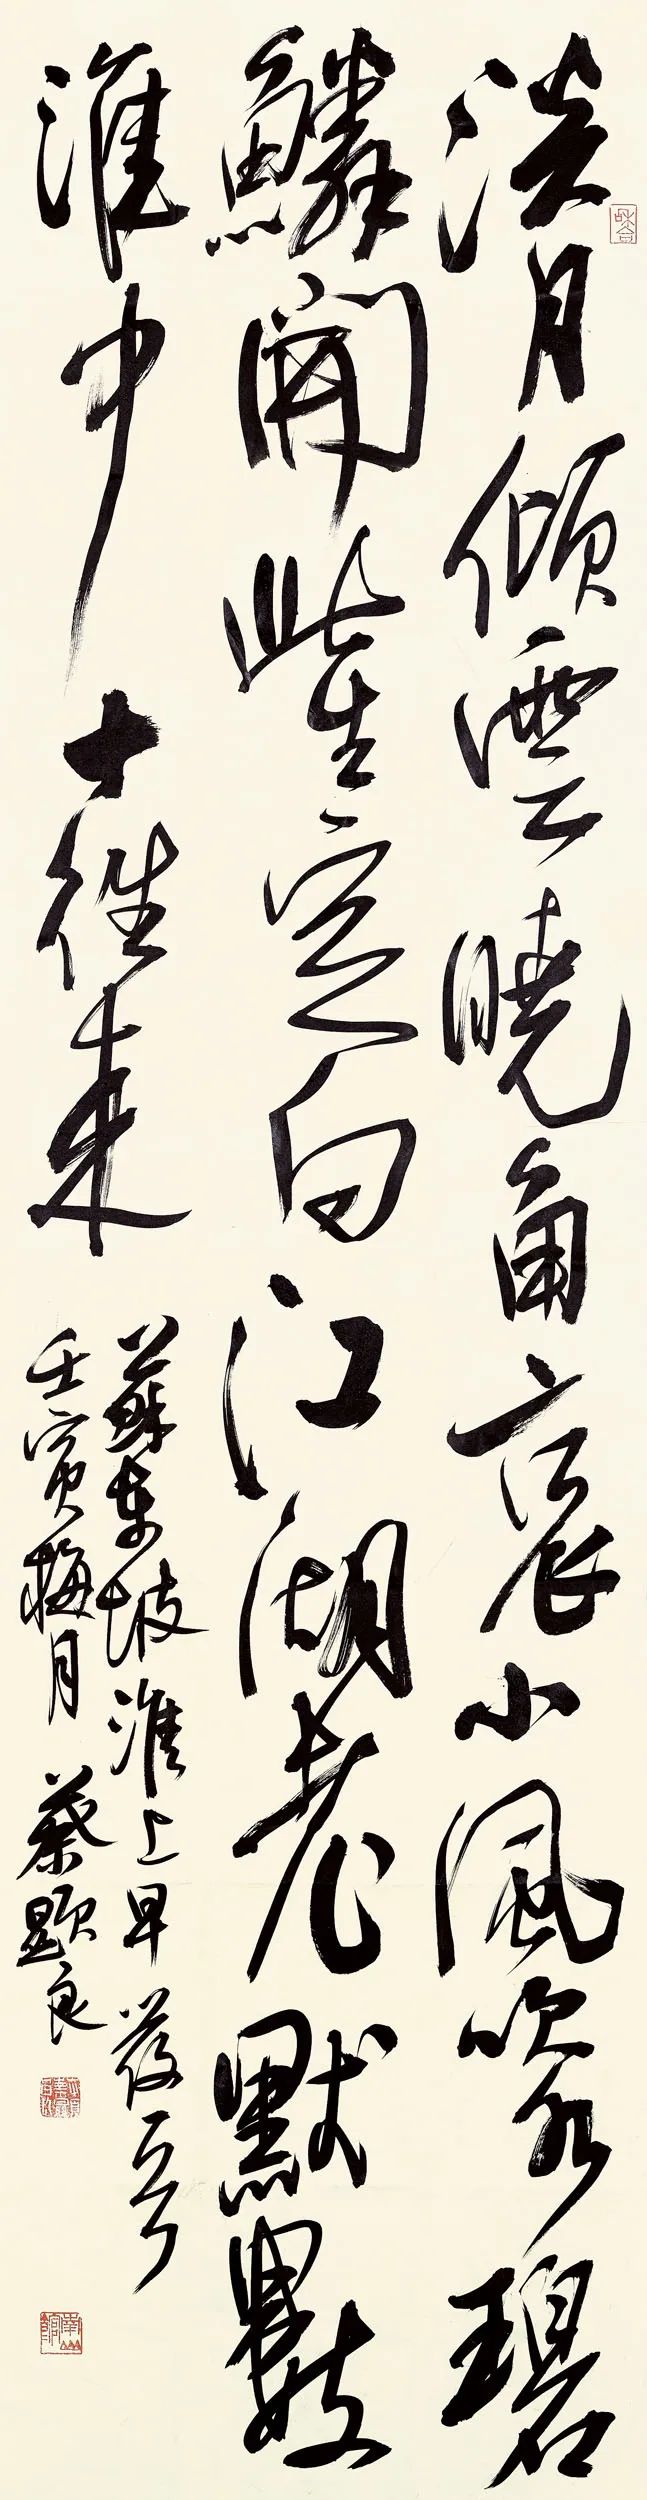 淡月傾雲曉角哀小風吹水碧
鱗開此生定向江湖老默數
淮中十往来
蘇東坡淮上早發
壬寅梅月 蔡顯良